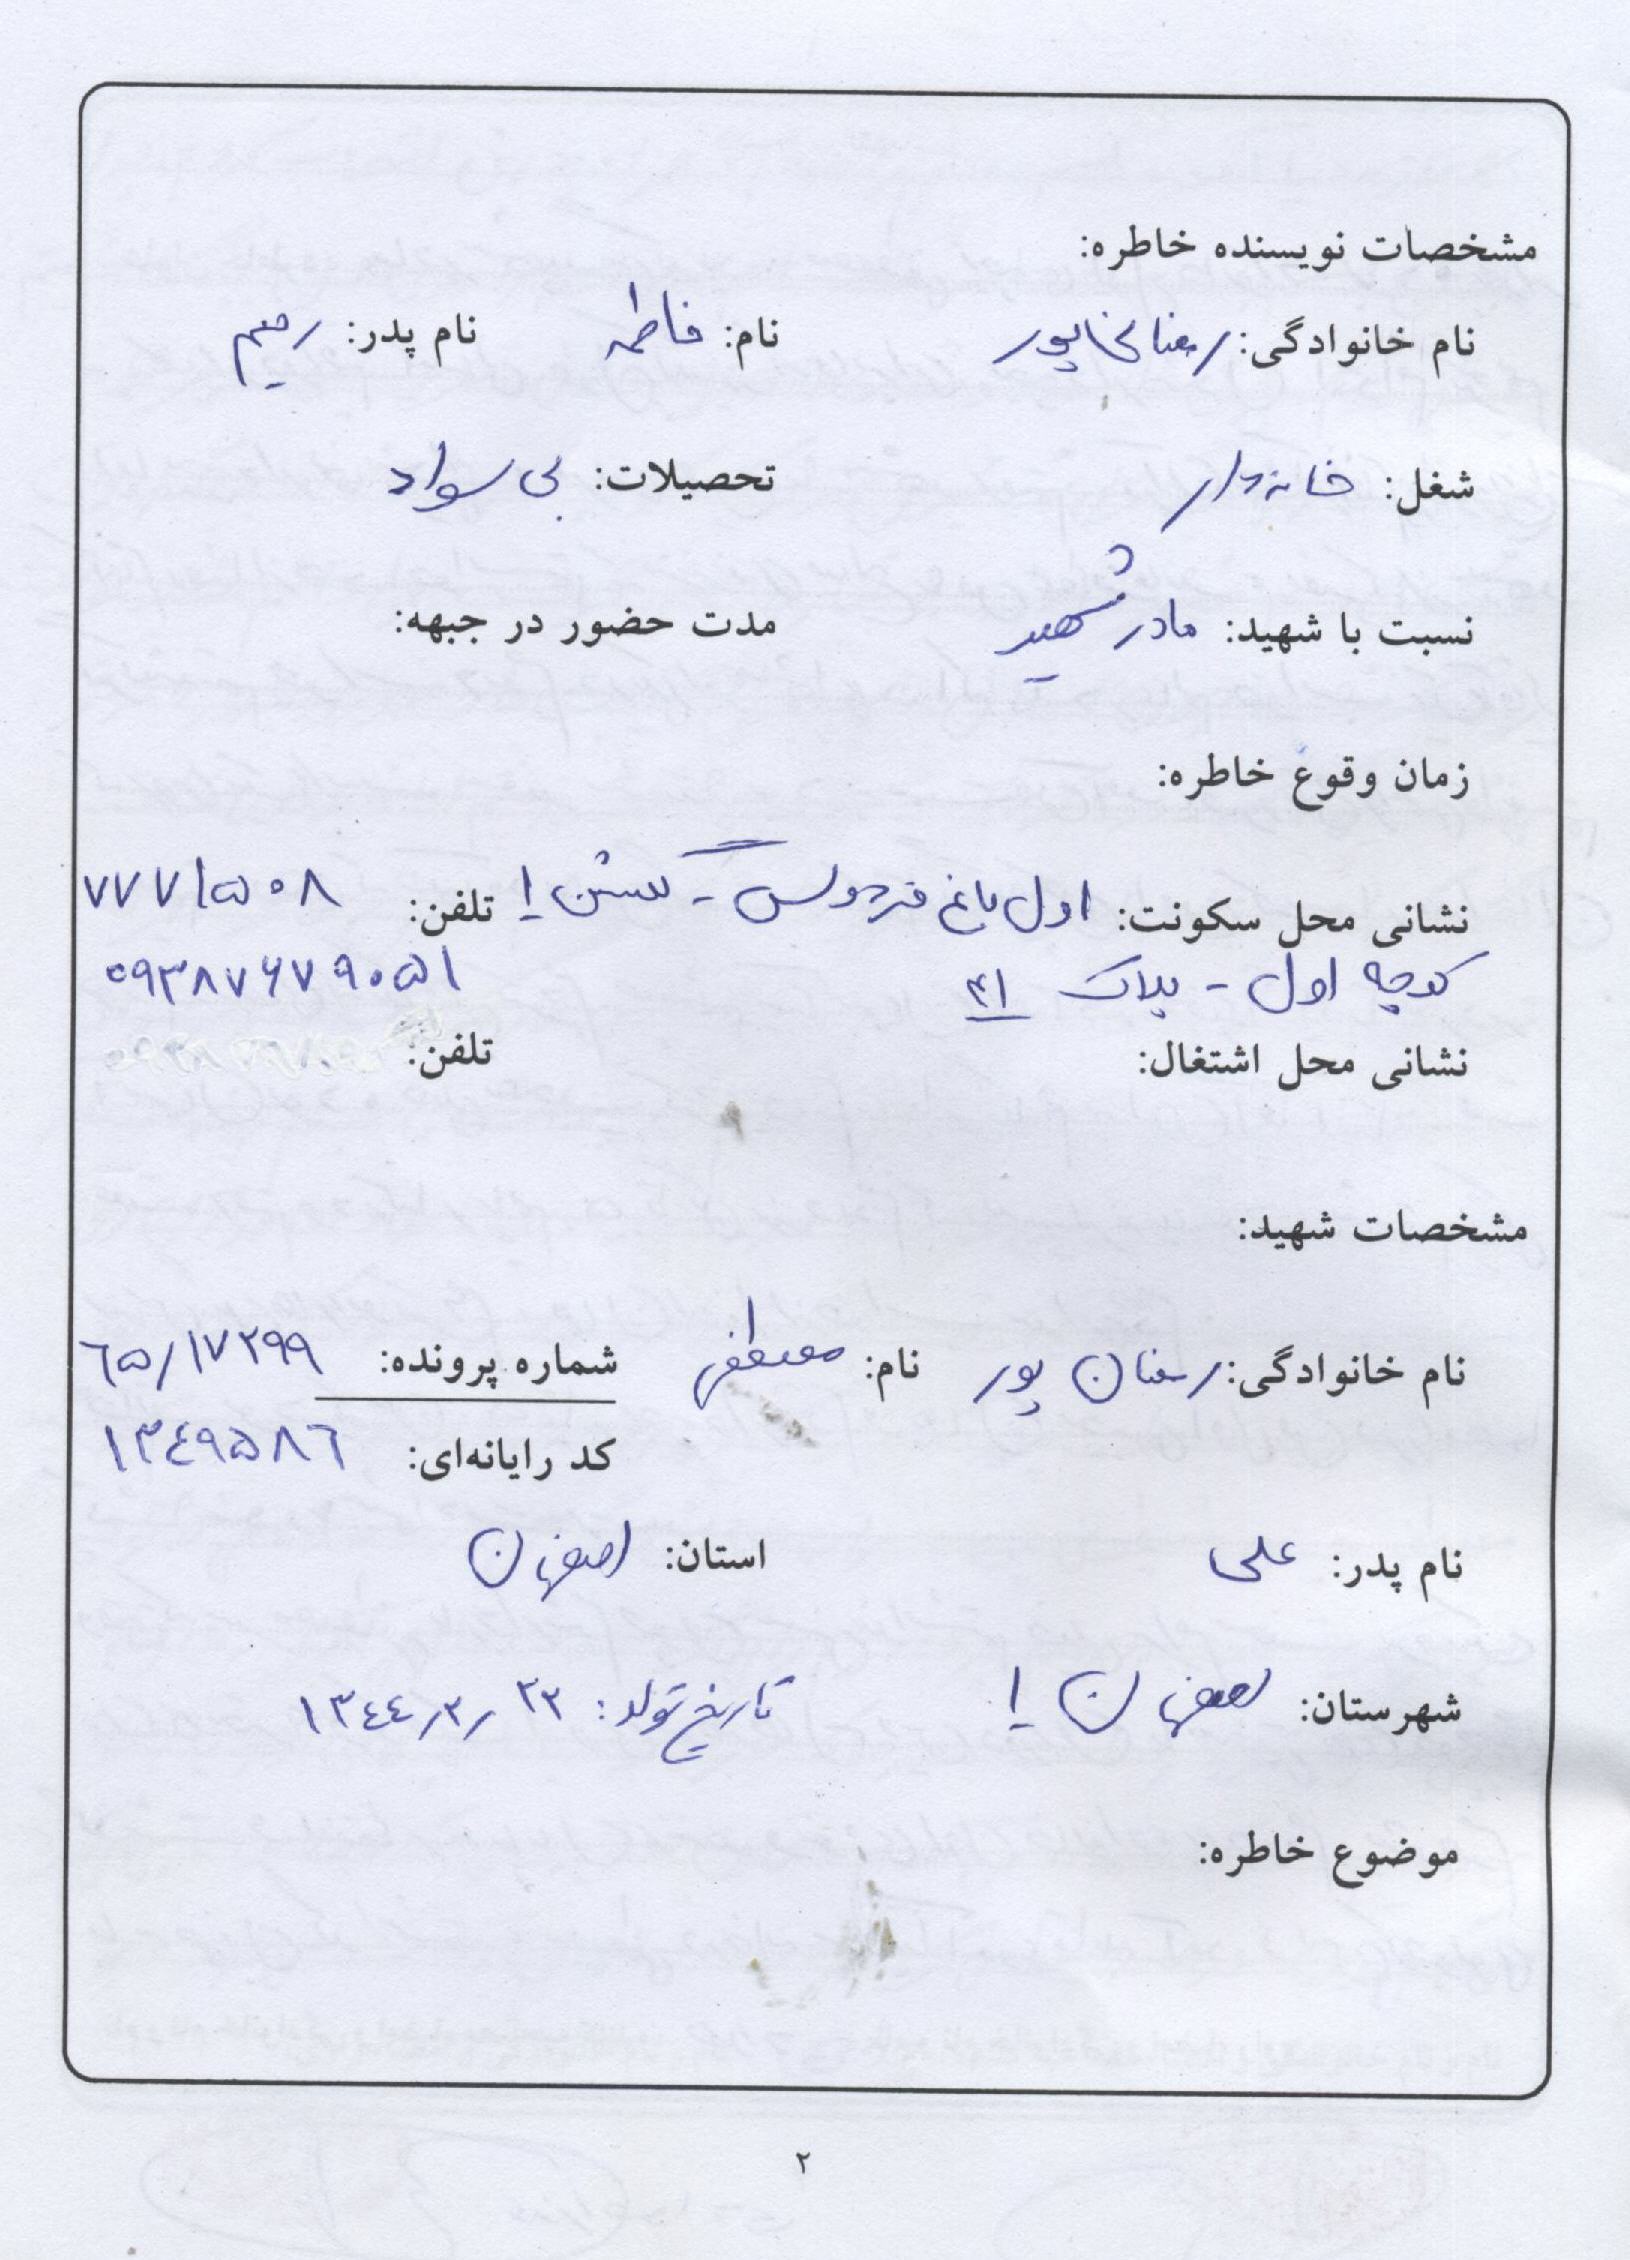 مشخصات نویسنده خاطره:
نام خانوادگی: رمضانپور نام: فاطمه نام پدر: رحیم
شغل: خانه دار تحصیلات: بی سواد
نسبت با شهید: مادر شهید مدت حضور در جبهه:
زمان وقوع خاطره:
نشانی محل سکونت: اول باغ فردوس - گلستان ۱ تلفن: ۷۷۷۱۵۰۸
کوچه اول - پلاک ۴۱ ۰۹۳۸۷۶۷۹۰۵۱
نشانی محل اشتغال: تلفن:
مشخصات شهید:
نام خانوادگی: رمضان پور نام: مصطفی شماره پرونده: ۶۵/۱۷۲۹۹
کد رایانه‌ای: ۱۳۴۹۵۸۶
نام پدر: علی استان: اصفهان
شهرستان: اصفهان ۱ تاریخ تولد: ۱۳۴۴/۳/۲۳
موضوع خاطره:
۲